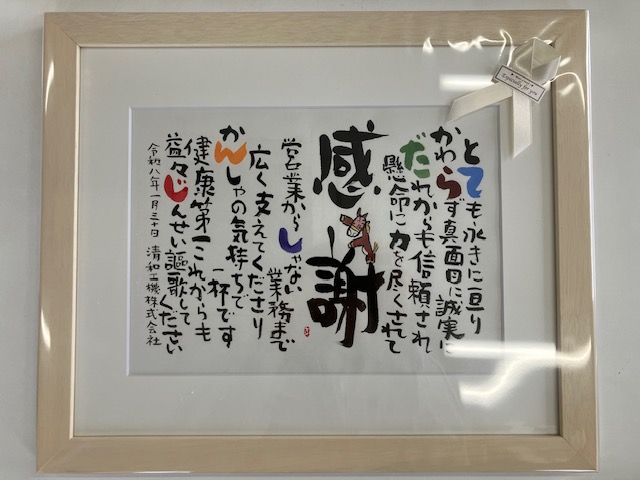 とても永きに亘り
かわらず真面目に誠実に
だれからも信頼され
懸命に力を尽くされて
感謝
営業からしゃない業務まで
広く支えてくださり
かんしゃの気持ちで
一杯です
健康第一これからも
益々じんせい謳歌して
ください
令和八年一月三十日 清和工機株式会社
Especially for you